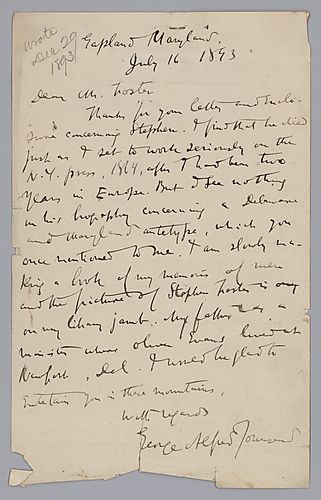 wrote
Dec 29
1893
Gapland Maryland,
July 16 1893
Dear Mr. Foster
Thanks for your letter and enclo-
sure concerning Stephen. I find that he died
just as I set to work seriously on the
N.Y. press, 1864, after I had been two
years in Europe. But I see nothing
in his biography concerning a Delaware
and Maryland antetype, which you
once mentioned to me. I am slowly ma-
king a book of my memoirs of men
and the picture of Stephen Foster is on
my library jamb. My father was a
minister where Oliver Evans lived at
Newport, Del. I would be glad to
entertain you in these mountains,
With regards
George Alfred Townsend